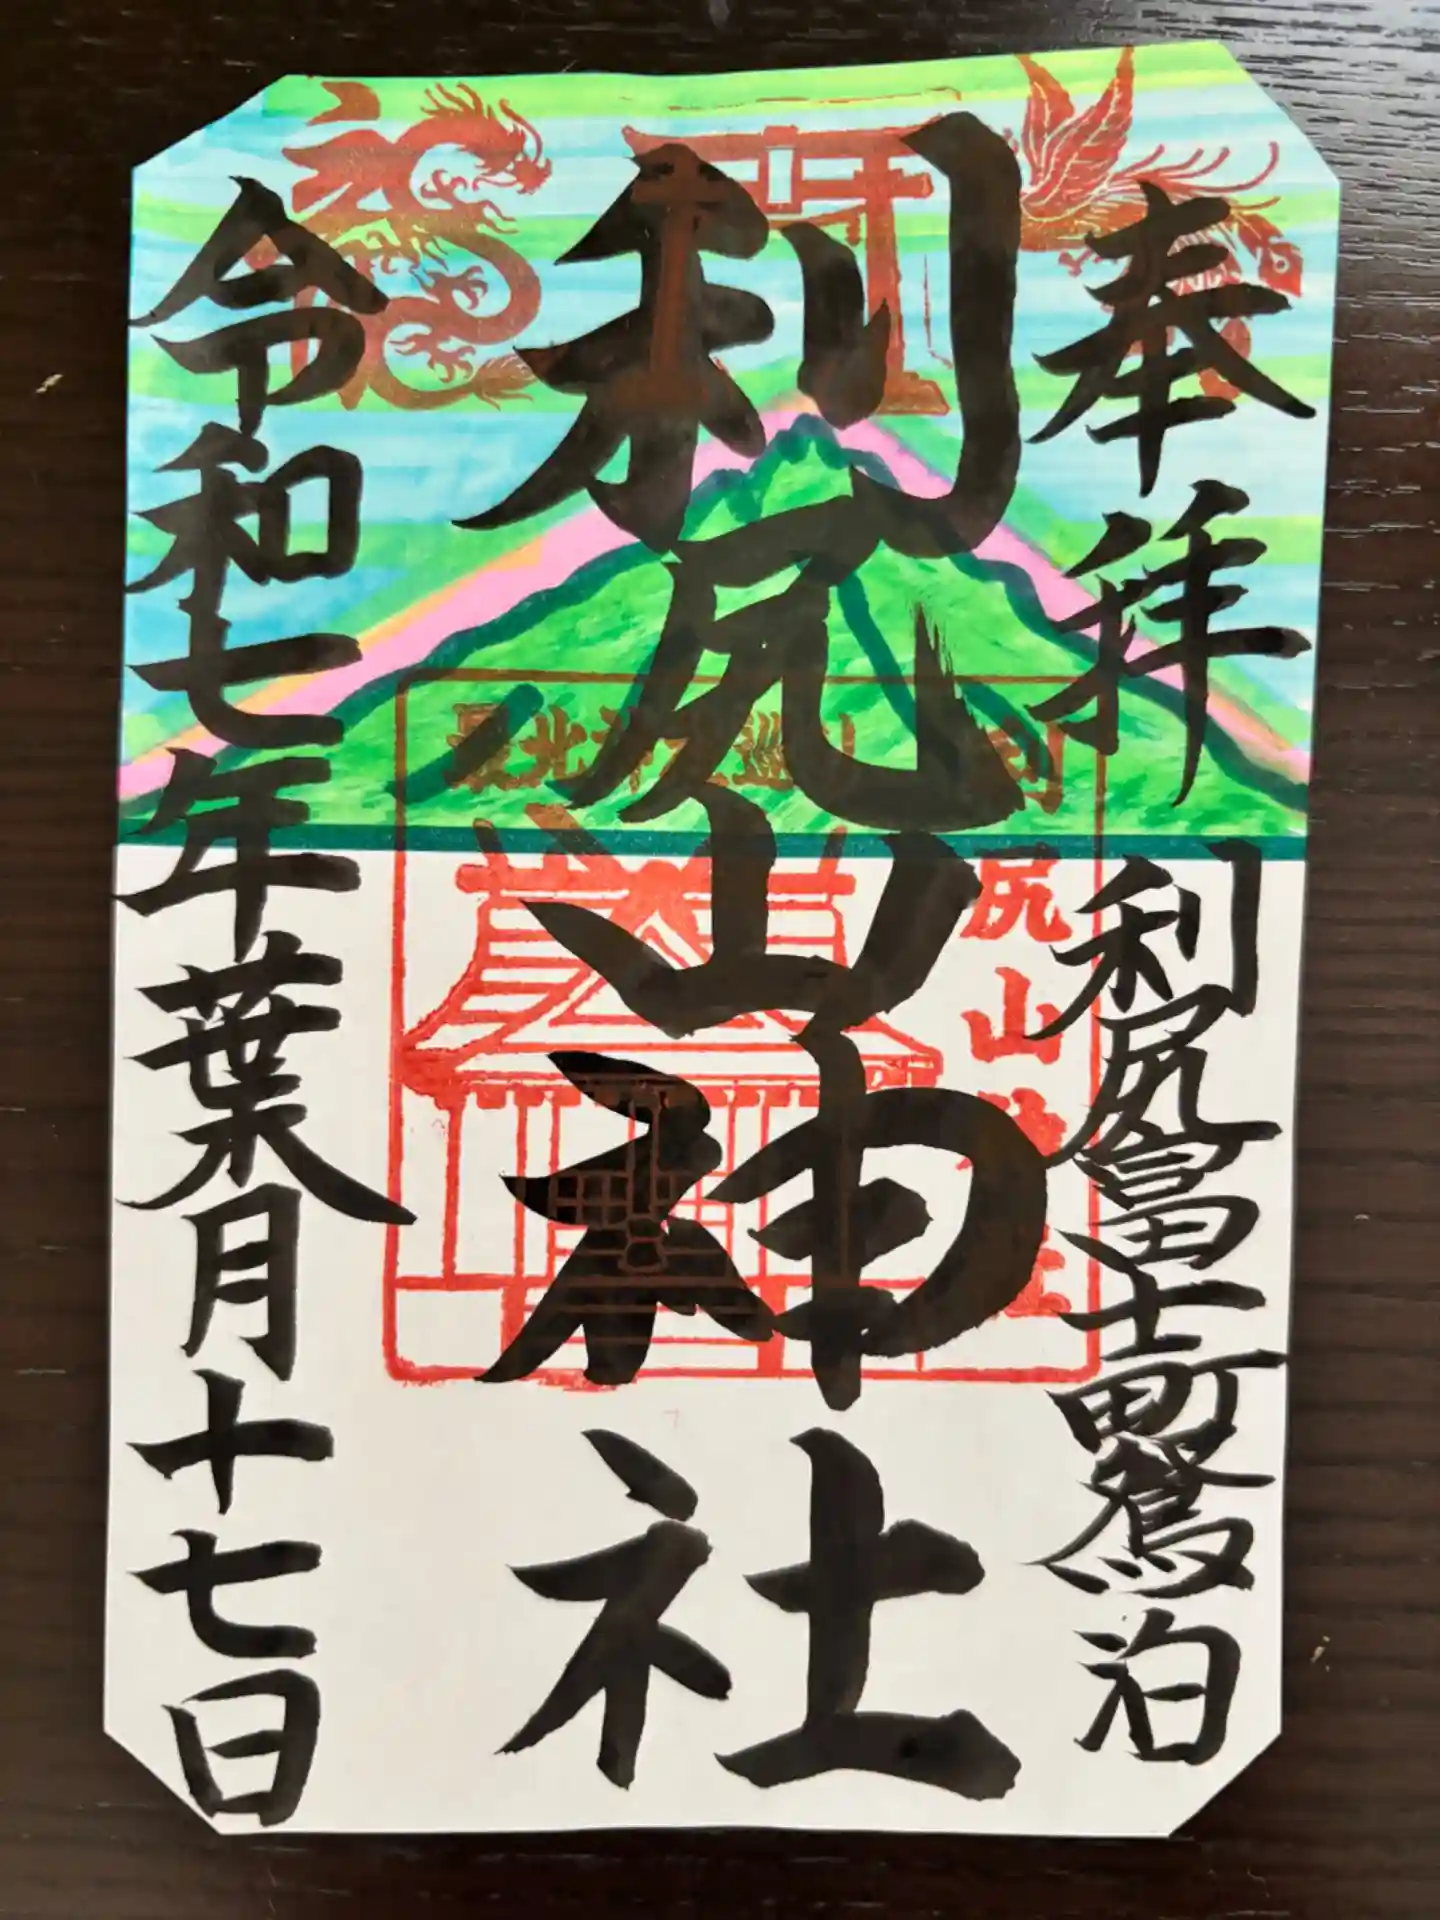 奉拝
利尻富士町鴛泊
利尻山神社
令和七年葉月十七日
利尻山神社